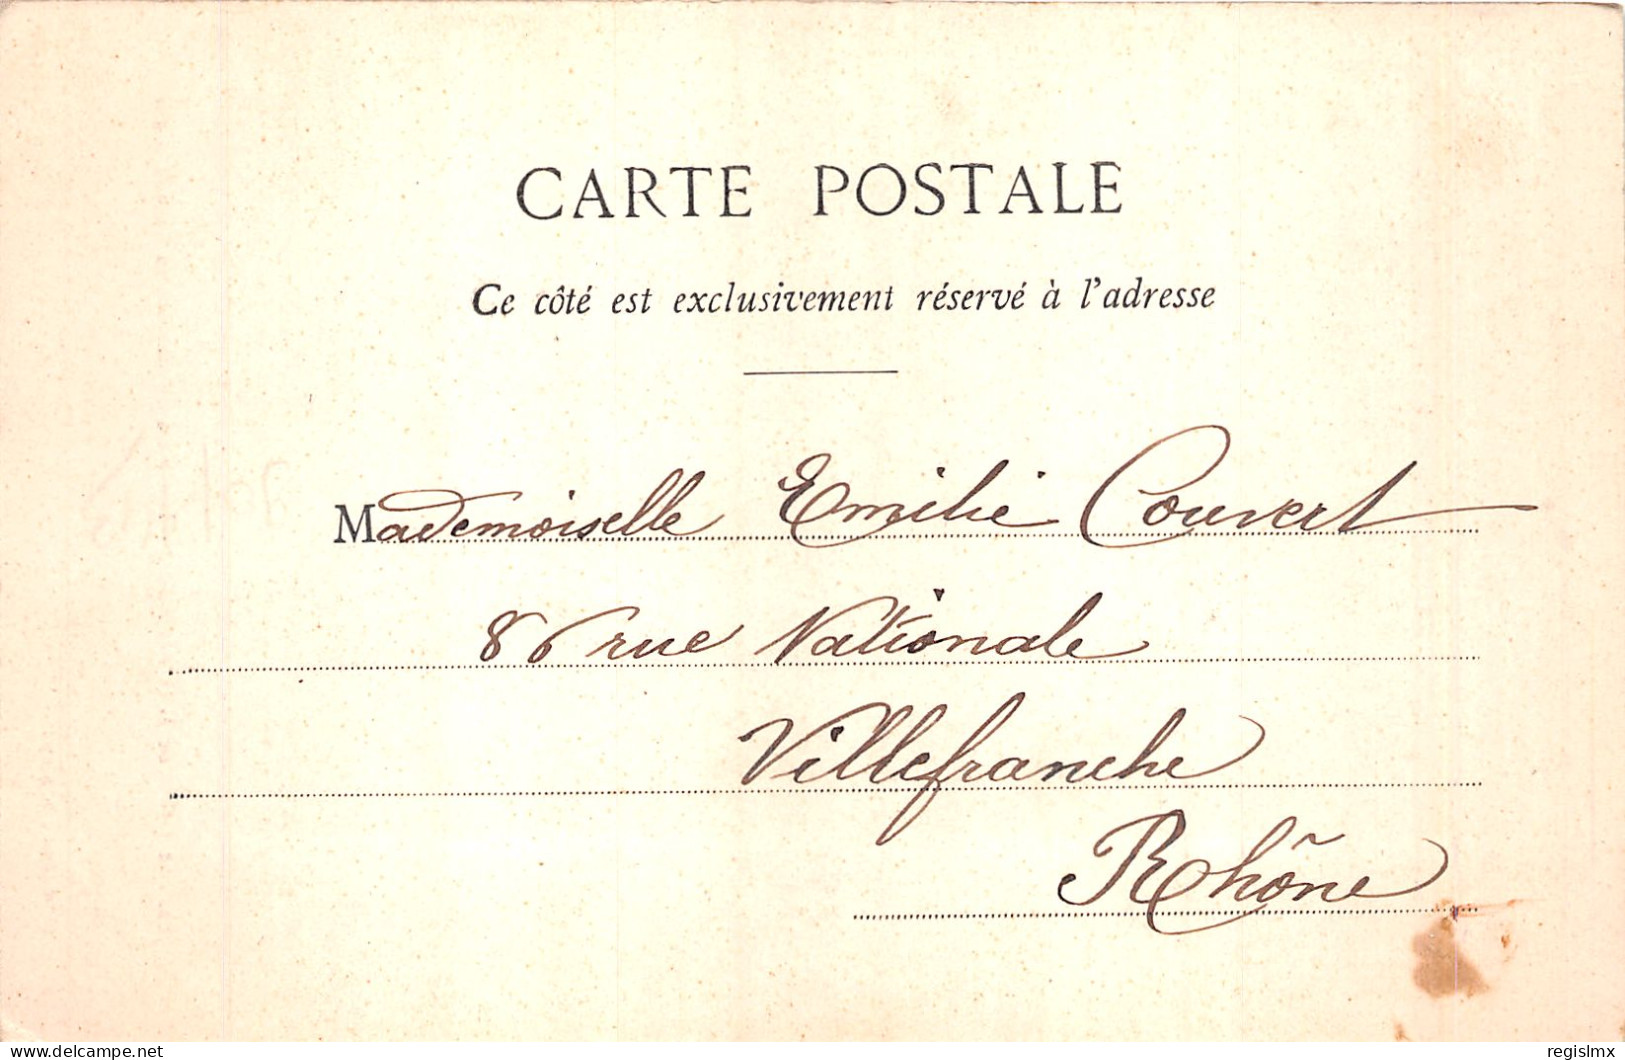 CARTE POSTALE
Ce côté est exclusivement réservé à l'adresse
Mademoiselle Emilie Couvert
86 rue Nationale
Villefranche
Rhône
delcampe.net
regislmx